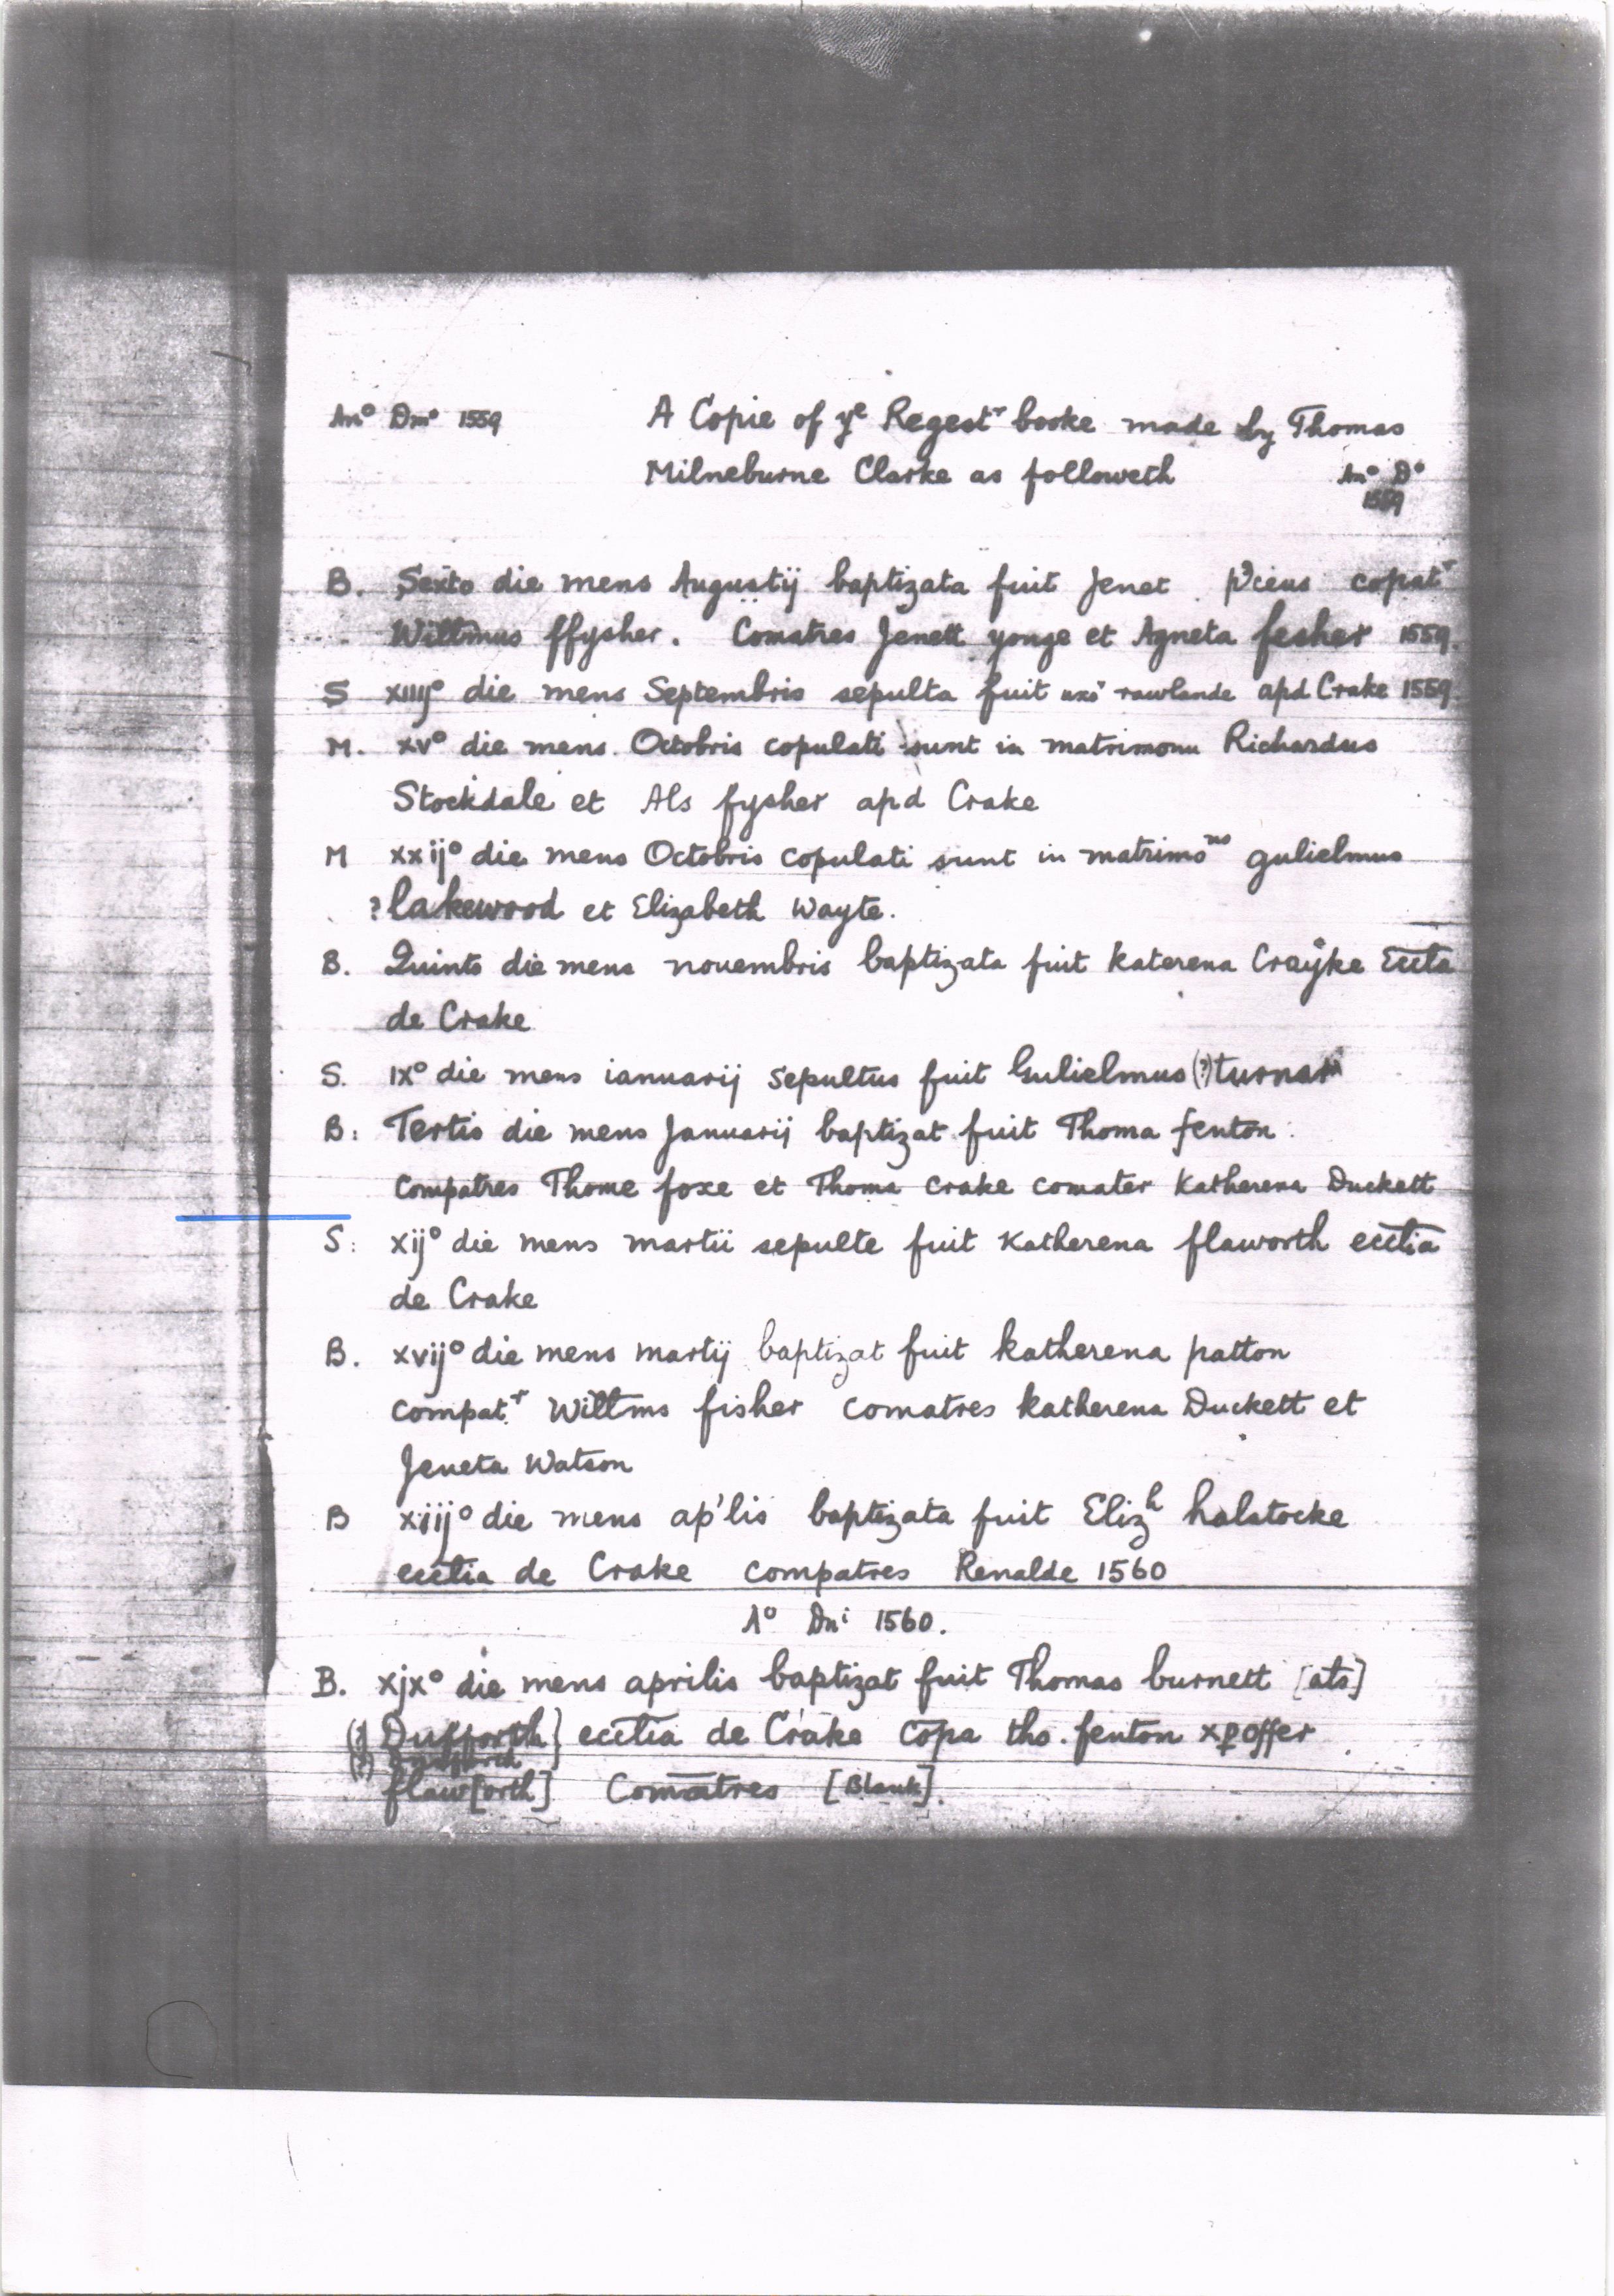 Anº Dmº 1559
A Copie of yᵉ Regestʳ booke made by Thomas
Milneburne Clarke as followeth
Anº Dº
1559
B. Sexto die mens Augustij baptizata fuit Jenet p'cius copatʳ
Willmus ffysher. Comatres Jenett yonge et Agneta fesher 1559.
S xiiijº die mens Septembris sepulta fuit uxoʳ rawlande apd Crake 1559.
M. xvº die mens. Octobris copulati sunt in matrimonu Richardus
Stockdale et Als fysher apd Crake
M xxijº die mens Octobris copulati sunt in matrimoⁿᵒ gulielmus
? lakewood et Elizabeth Wayte.
B. Quinto die mens novembris baptizata fuit katerena Crayke Eccta
de Crake
S. ixº die mens ianuarij sepultus fuit Gulielmus (?) turnar
B: Tertio die mens Januarij baptizat fuit Thoma fenton.
Compatres Thome foxe et Thoma Crake comater Katherena Duckett
S: xijº die mens martii sepulte fuit Katherena flaworth ecctia
de Crake
B. xvijº die mens martij baptizat fuit katherena patton
compat.ʳ Willms fisher comatres katherena Duckett et
Jeneta Watson
B xiiijº die mens ap'lis baptizata fuit Elizʰ holstocke
ecctia de Crake compatres Renalde 1560
Aº Dni 1560.
B. xjxº die mens aprilis baptizat fuit Thomas burnett [ats]
(?) Dufforth} ecctia de Crake Copa tho. fenton xpoffer
(?)
flaw[orth] Comatres [Blank].